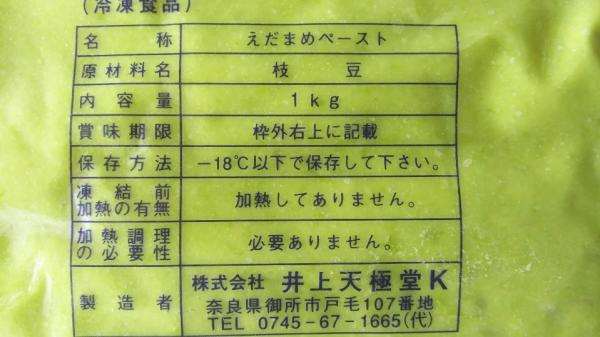 (冷凍食品)
名称 えだまめペースト
原材料名 枝豆
内容量 1kg
賞味期限 枠外右上に記載
保存方法 −18℃以下で保存して下さい。
凍結前
加熱の有無 加熱してありません。
加熱調理
の必要性 必要ありません。
製造者 株式会社 井上天極堂K
奈良県御所市戸毛107番地
TEL 0745-67-1665(代)